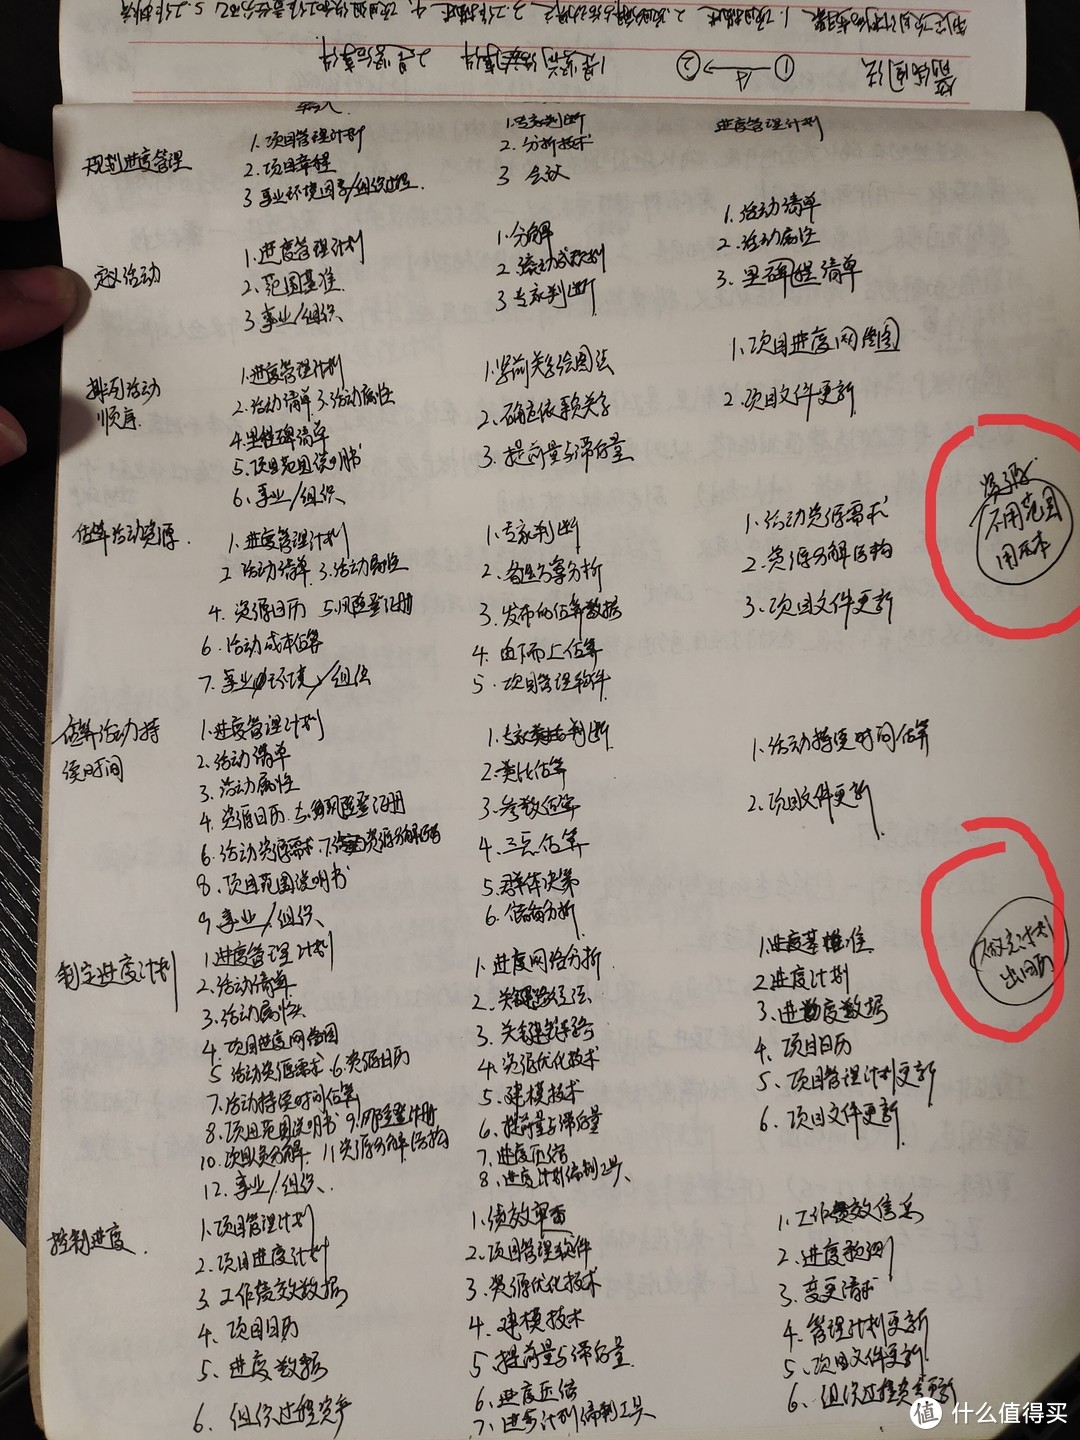 箭线图法 ①→② 1.是紧前活动事件 2.是紧后事件
输入
规划进度管理
1.项目管理计划
2.项目章程
3事业环境因素/组织过程.
1.专家判断
2.分析技术
3 会议
进度管理计划
定义活动
1.进度管理计划
2.范围基准.
3事业/组织
1.分解
2.滚动式规划
3专家判断
1.活动清单
2.活动属性
3.里碑程清单
排列活动
顺序.
1.进度管理计划
2.活动清单 3.活动属性
4.里程碑清单
5.项目范围说明书
6.事业/组织
1.紧前关系绘图法
2.确定依赖关系
3.提前量与滞后量
1.项目进度网络图
2.项目文件更新
估算活动资源.
1.进度管理计划
2 活动清单 3.活动属性
4.资源日历 5.风险登记册
6.活动成本估算
7.事业环境/组织
1.专家判断
2.备选方案分析
3.发布的估算数据
4.由下而上估算
5.项目管理软件
1.活动资源需求
2.资源分解结构
3.项目文件更新
资源
不用范围
用成本
估算活动持
续时间
1.进度管理计划
2.活动清单
3.活动属性
4.资源日历 5.风险登记册
6.活动资源需求.7.资源分解结构
8.项目范围说明书
9.事业/组织
1.专家判断
2.类比估算
3.参数估算
4.三点估算
5.群体决策
6.储备分析
1.活动持续时间估算
2.项目文件更新
制定进度计划
1.进度管理计划
2.活动清单
3.活动属性
4.项目进度网络图
5 活动资源需求 6.资源日历
7.活动持续时间估算
8.项目范围说明书 9.风险登记册
10.项目人员分解. 11资源分解结构
12.事业/组织
1.进度网络分析
2.关键路径法
3.关键链
4.资源优化技术
5.建模技术
6.提前量与滞后量
7.进度压缩
8.进度计划编制工具
1.进度基准
2进度计划
3.进度数据
4.项目日历
5.项目管理计划更新
6.项目文件更新
做完计划
出日历
控制进度.
1.项目管理计划
2.项目进度计划
3.工作绩效数据
4.项目日历
5.进度数据
6.组织过程资产
1.绩效审查
2.项目管理软件
3.资源优化技术
4.建模技术
5提前量与滞后量
6.进度压缩
7.进度计划编制工具
1.工作绩效信息
2.进度预测
3.变更请求
4.管理计划更新
5.项目文件更新
6.组织过程资产更新
值 什么值得买